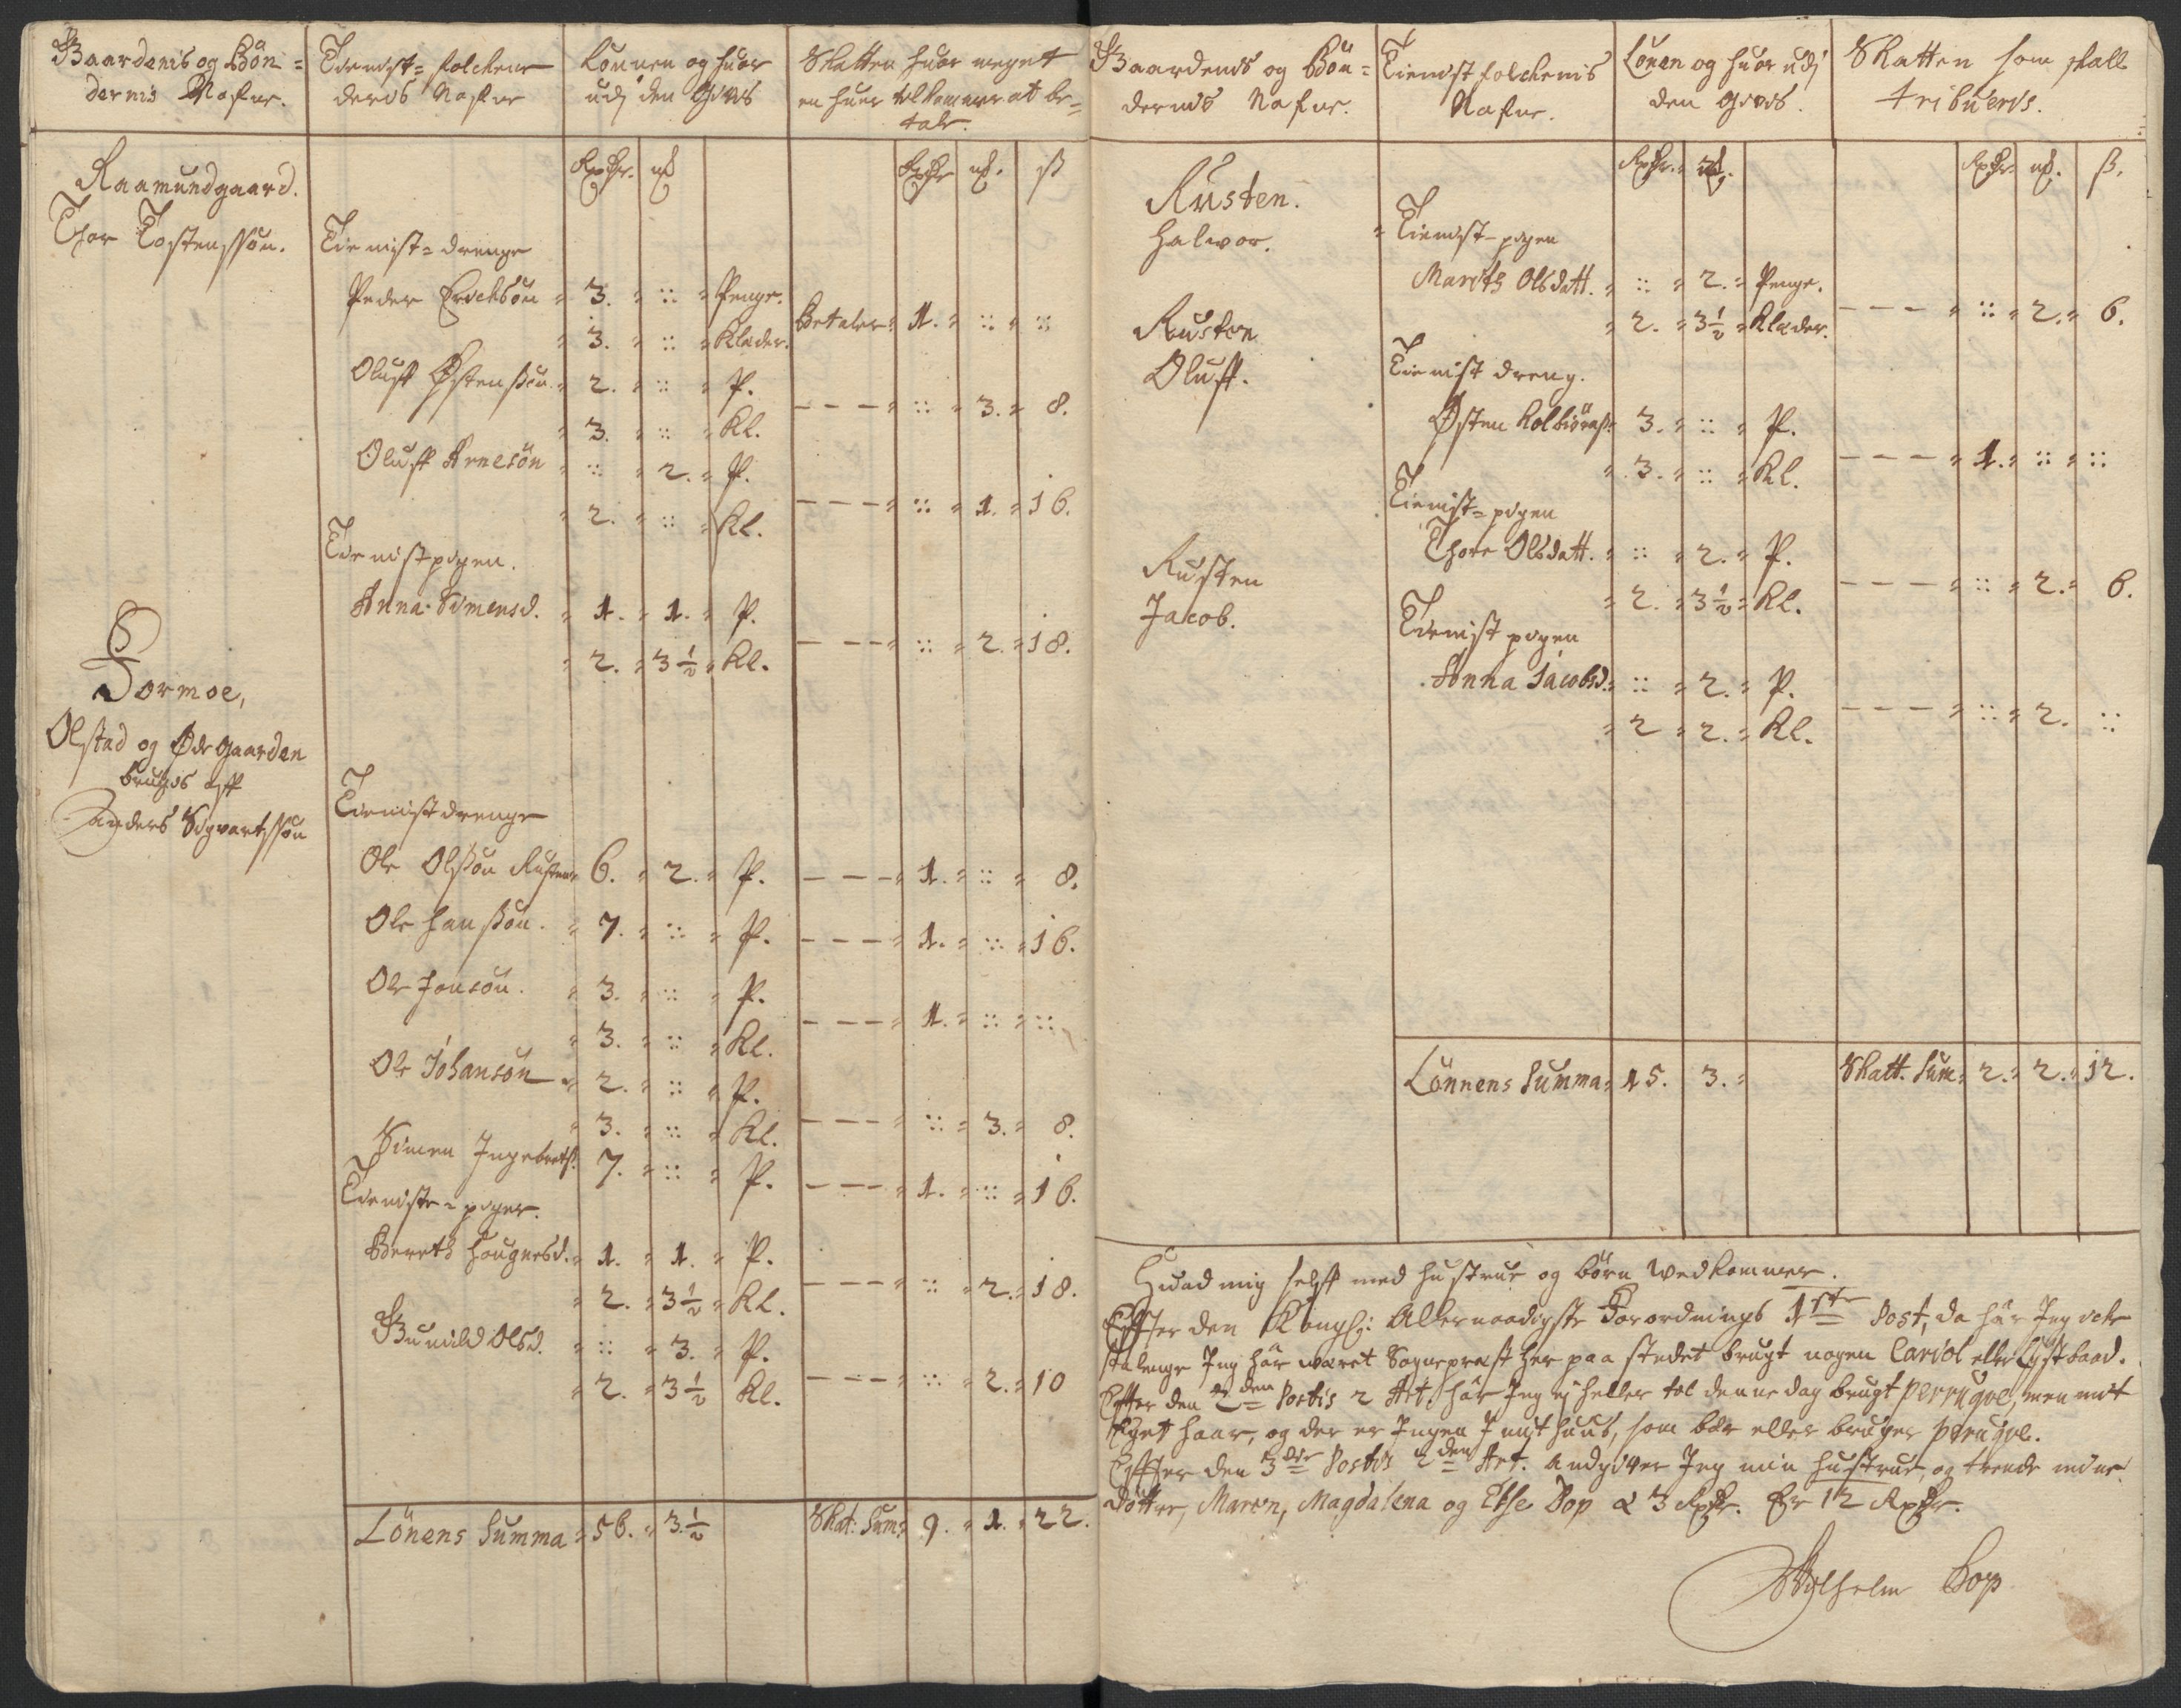 Gaardenis og Bön=
dernis Nafne.
Tienist-folckene
deris Nafne
Lönnen og huor
udj den Givis
Skatten huor meget
en huer tilkommer at be=
tale.
Rixdr. mk
Rixdr mk. ß
Raamundgaard.
Thor Tostenssön.
Tienist=drenge
Peder Erichsön 3. :: Penge.
3. :: Klæder. Betaler 1. :: ::
Oluff Østenssön 2. :: P.
3. :: Kl. --- :: 3. 8.
Oluff Arnesön :: 2. P.
2. :: Kl. --- :: 1. 16.
Tienistpigen.
Anna Simensd. 1. 1. P.
2. 3½ Kl. --- :: 2. 18.
Formoe,
Olstad og Ødegaarden
brugis aff
Anders Sigvartssön
Tienistdrenge
Ole Olssön Rusten 6. 2. P. --- 1. :: 8.
Ole Hanssön. 7. :: P. --- 1. :: 16.
Ole Jonsön. 3. :: P.
3. :: Kl. --- 1. :: ::
Ole Johansön 2. :: P.
3. :: Kl. --- :: 3. 8.
Simen Ingebretss. 7. :: P. --- 1. :: 16.
Tieniste=piger.
Berete Haugnesd. 1. 1. P.
2. 3½ Kl. --- :: 2. 18.
Gunild Olsd. :: 3. P.
2. 3½ Kl. --- :: 2. 10
Lönens Summa 56. 3.½ Skat: Sum: 9. 1. 22.
Gaardenis og Bön=
dernis Nafne.
Tienistfolckenis
Nafne.
Lönen og huor udj
den Givis.
Skatten som skall
tribueris.
Rixdr. mk.
Rixdr. mk. ß.
Rusten.
Halvor.
Tienist-pigen
Marits Olsdatt. :: 2. Penge.
2. 3½ Klæder. --- :: 2. 6.
Rusten
Oluff.
Tienist dreng.
Østen Kolbiörnss. 3. :: P.
3. :: Kl. --- 1. :: ::
Tienist=pigen
Thore Olsdatt. :: 2. P.
2. 3½ Kl. --- :: 2. 6.
Rusten
Jacob.
Tienist pigen
Anna Jacobsd. :: 2. P.
2 2. Kl. --- :: 2. ::
Lönnens Summa 15. 3. Skatt. Sum 2. 2. 12.
Huad mig selff med hustrue og börn vedkommer.
Effter den Kongl: Allernaadigste Forordnings 1ste Post, da har Jeg icke
saalenge Jeg har været Sogneprest her paa stedet brugt nogen Cariol eller Lystbaad.
Effter den 2den Postis 2 Art. har Jeg ej heller til denne dag brugt perruqve, men mit
Eget haar, og der er Ingen I mit huus, som bær eller bruger peruqve.
Effter den 3die Postis 2den Art. Andgiver Jeg min hustrue, og trende mine
Döttre, Maren, Magdalena og Else Bop à 3 Rixdr. Er 12 Rixdr.
Wilhelm Bop